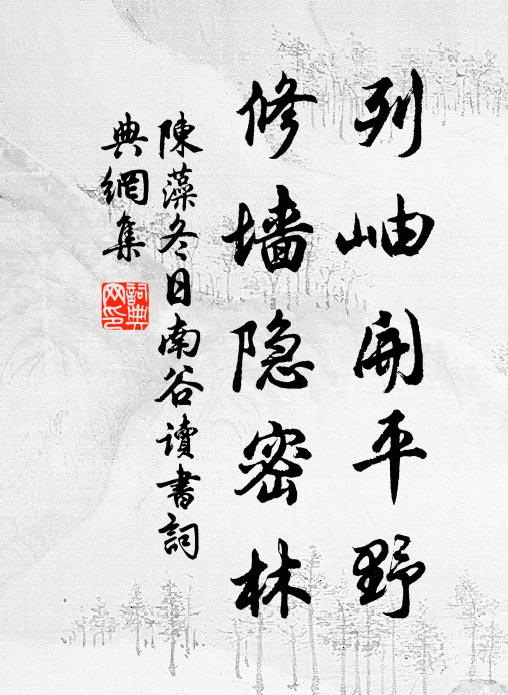 列岫開平野
修墙隐密林
陳藻冬日南谷讀書詞
典網集
詞典
网印